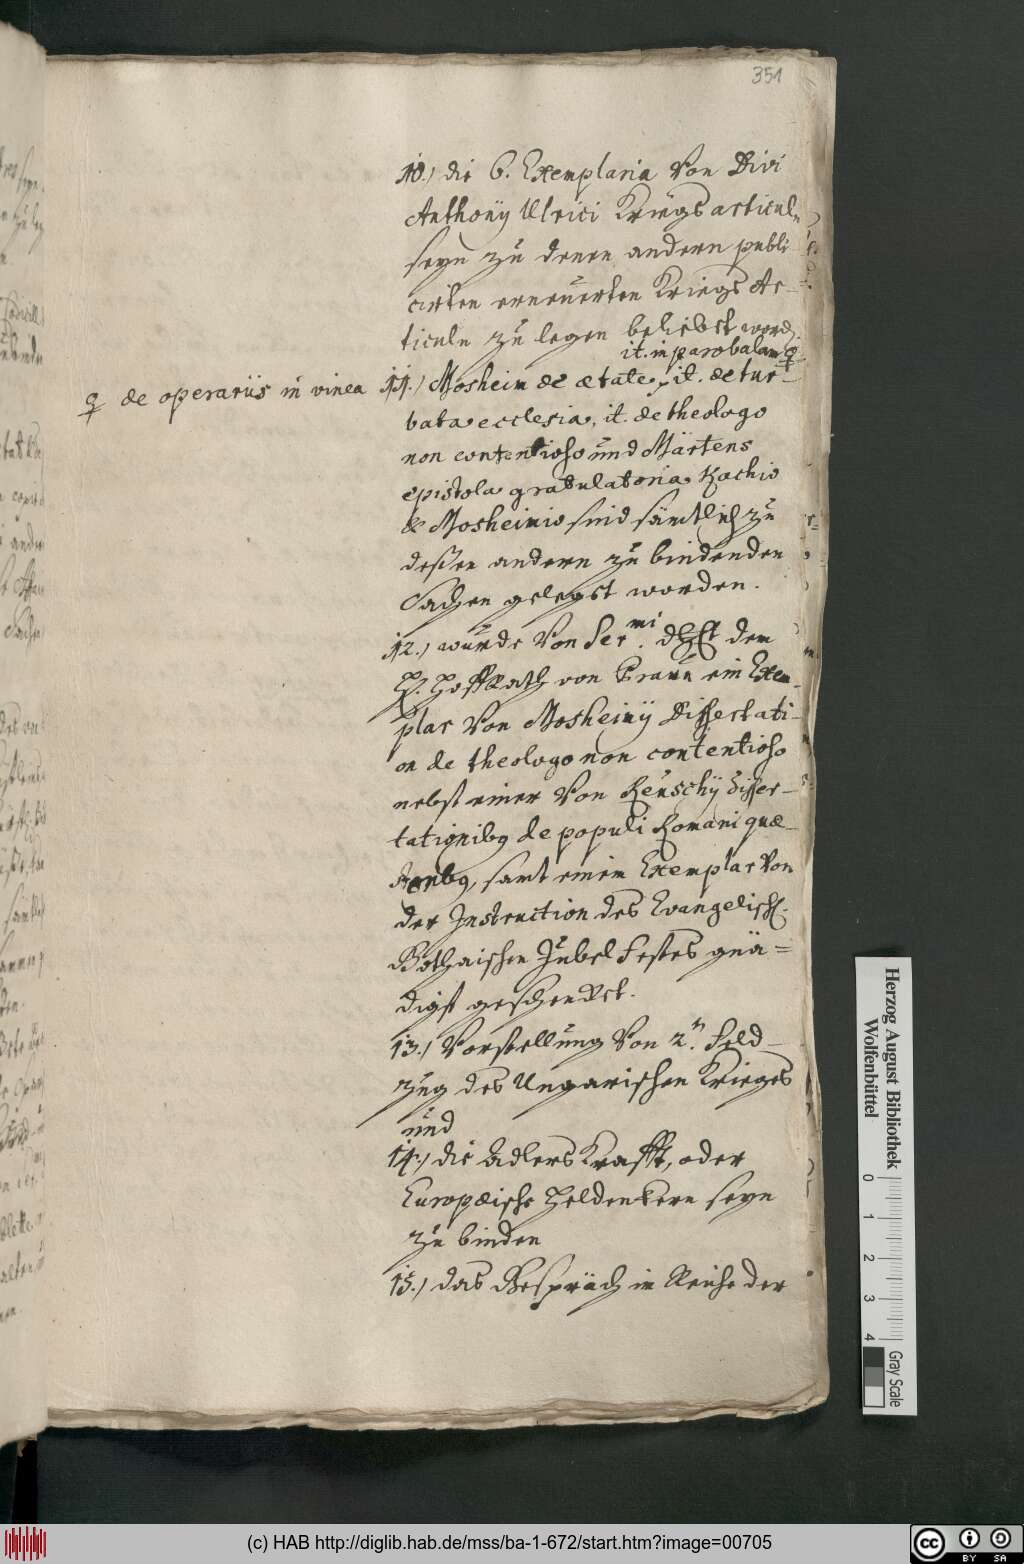 351
10.) die 6. Exemplaria Von Divi
Anthonÿ Ulrici Kriegs articuln
seyn zu denen andern publi
cirten erneuerten Kriegs Ar-
ticuln zu legen beliebet word
it. in parabalam
♀ de operariis in vinea
11.) Mosheim de ætate, it. de tur-
bata ecclesia, it. de theologo
non contentioso und Märtens
epistola gratulatoria Kochio
& Mosheimio sind sämtlich zu
deßen andern zu bindenden
Sachen gelegt worden.
12.) wurde Von Ser.mi dem
H. Hoffrath von Praun ein Exem-
plar Von Mosheimÿ Dissertati-
on de theologo non contentioso
nebst einer Von Reuschÿ disser-
tationibg de populi Romani quæ-
samt einem Exemplar Von
der Instruction des Evangelisch.
Gothaischen Jubel Festes gnä=
digst geschenket.
13.) Vorstellung Von 2.n Feld-
zug des Ungarischen Krieges
und
14.) die Adlers Krafft, oder
Europæische Heldenkern seyn
zu binden
15.) das Gespräch im Reiche der
Herzog August Bibliothek
Wolfenbüttel
0 1 2 3 4
Gray Scale
(c) HAB http://diglib.hab.de/mss/ba-1-672/start.htm?image=00705
cc BY SA